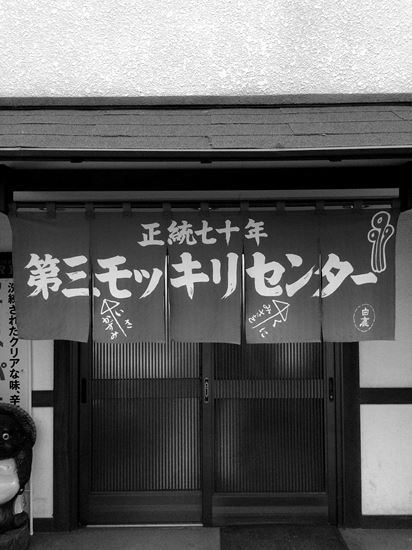 正統七十年
第三モッキリセンター
白鹿
洗練されたクリアな味、辛